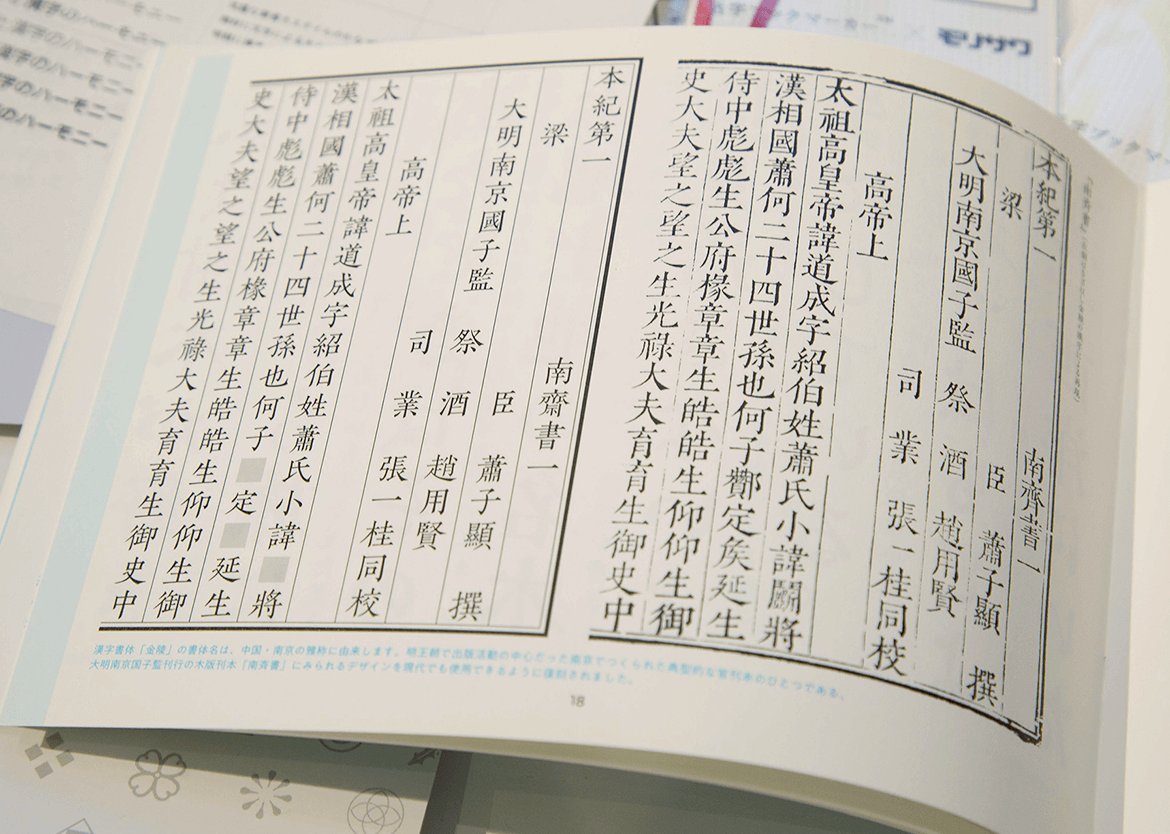 漢字のハーモニー
漢字のハーモニー
漢字のハーモニー
のハーモニー
字ブックマーカー × モリサワ
本紀第一 南齊書一
梁 臣 蕭子顯 撰
大明南京國子監 祭酒 趙用賢
司業 張一桂同校
高帝上
太祖高皇帝諱道成字紹伯姓蕭氏小諱鬭將
漢相國蕭何二十四世孫也何子酇定矦延生
侍中彪彪生公府掾章章生皓皓生仰仰生御
史大夫望之望之生光祿大夫育育生御史中
本紀第一 南齋書一
梁 臣 蕭子顯 撰
大明南京國子監 祭酒 趙用賢
司業 張一桂同校
高帝上
太祖高皇帝諱道成字紹伯姓蕭氏小諱 將
漢相國蕭何二十四世孫也何子 定 延生
侍中彪彪生公府掾章章生皓皓生仰仰生御
史大夫望之望之生光祿大夫育育生御史中
漢字書体「金陵」の書体名は、中国・南京の雅称に由来します。明王朝で出版活動の中心だった南京でつくられた典型的な官刊本のひとつである、
大明南京国子監刊行の木版刊本『南斉書』にみられるデザインを現代でも使用できるように復刻されました。
18